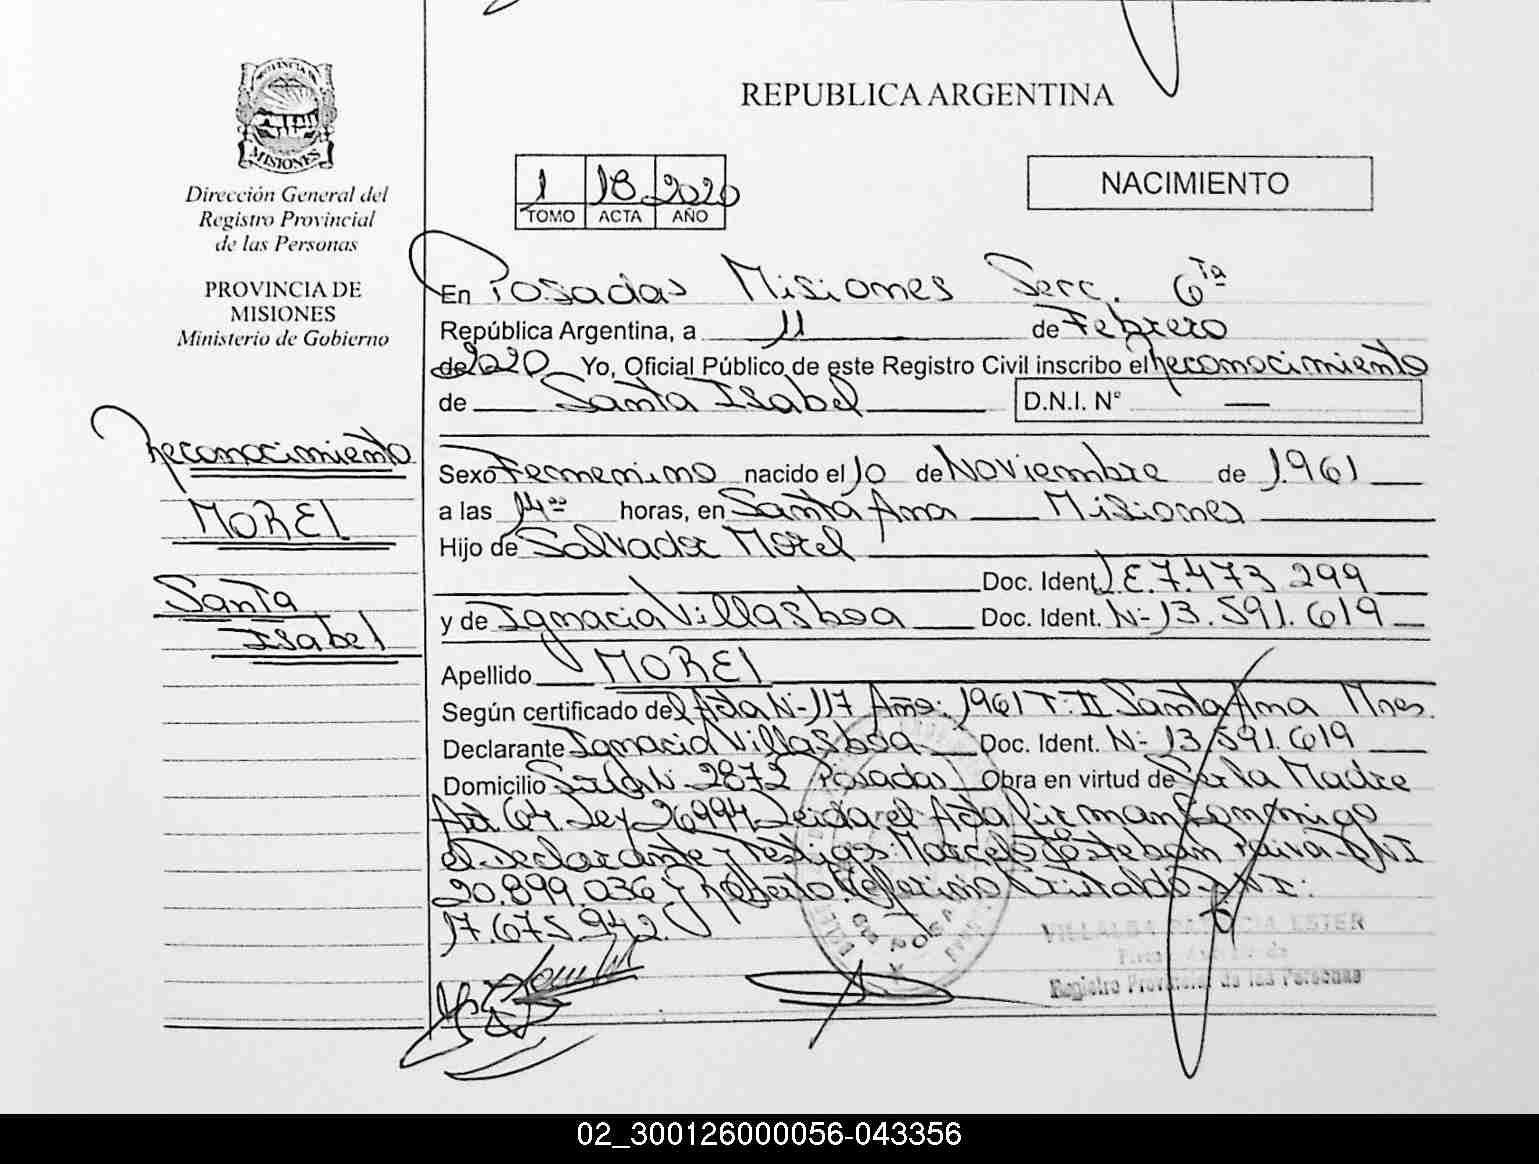 PROVINCIA DE
MISIONES
Dirección General del
Registro Provincial
de las Personas
PROVINCIA DE
MISIONES
Ministerio de Gobierno
Reconocimiento
MOREL
Santa
Isabel
REPUBLICA ARGENTINA
1 18 2020
TOMO ACTA AÑO
NACIMIENTO
En Posadas Misiones Secc. 6ta
República Argentina, a 11 de Febrero
de 2020 Yo, Oficial Público de este Registro Civil inscribo el Reconocimiento
de Santa Isabel D.N.I. N° —
Sexo Femenino nacido el 10 de Noviembre de 1.961
a las 14°° horas, en Santa Ana Misiones
Hijo de Salvador Morel
Doc. Ident. L.E. 7.473.299
y de Ignacia Villasboa Doc. Ident. N- 13.591.619
Apellido MOREL
Según certificado del Acta N- 117 Año: 1961 T: II Santa Ana Mnes.
Declarante Ignacia Villasboa Doc. Ident. N- 13.591.619
Domicilio 2872 Posadas Obra en virtud de Ser la Madre
Art. 64. Ley 26994 Leida el Acta firman conmigo
el Declarante y Testigos: Marcelo Esteban Paiva DNI
20.899.036 y Roberto Ceferino Cristaldo DNI:
17.675.942.
VILLALBA PATRICIA ESTER
Registro Provincial de las Personas
02_300126000056-043356